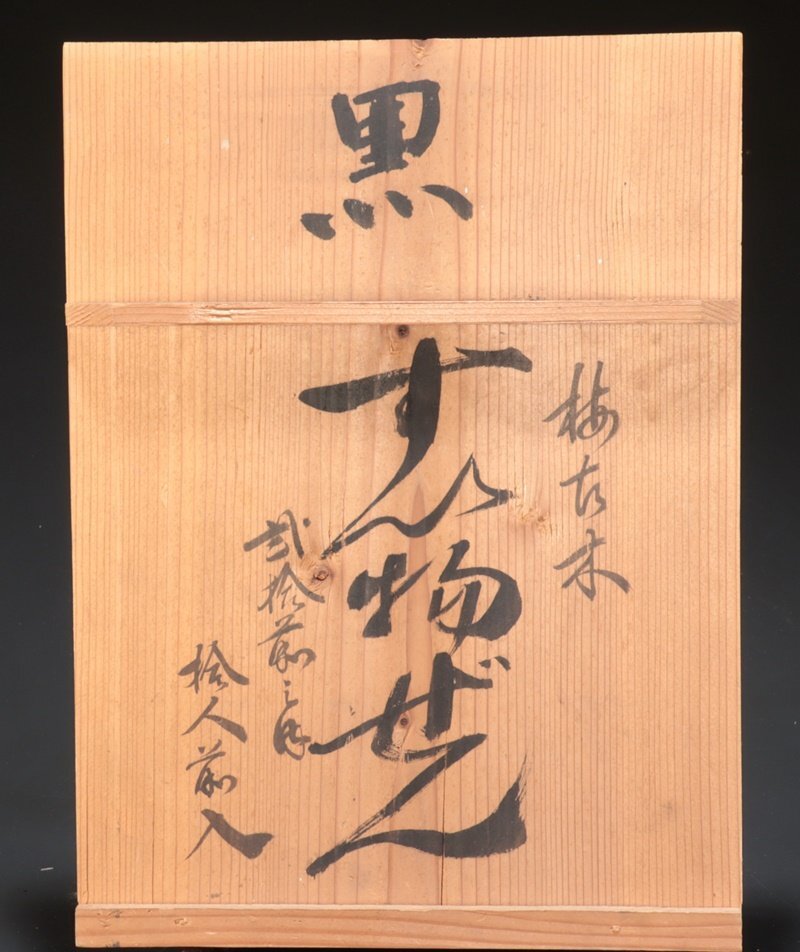 黒
梅古木
すひ物ぜん
弐拾前之内
拾人前入